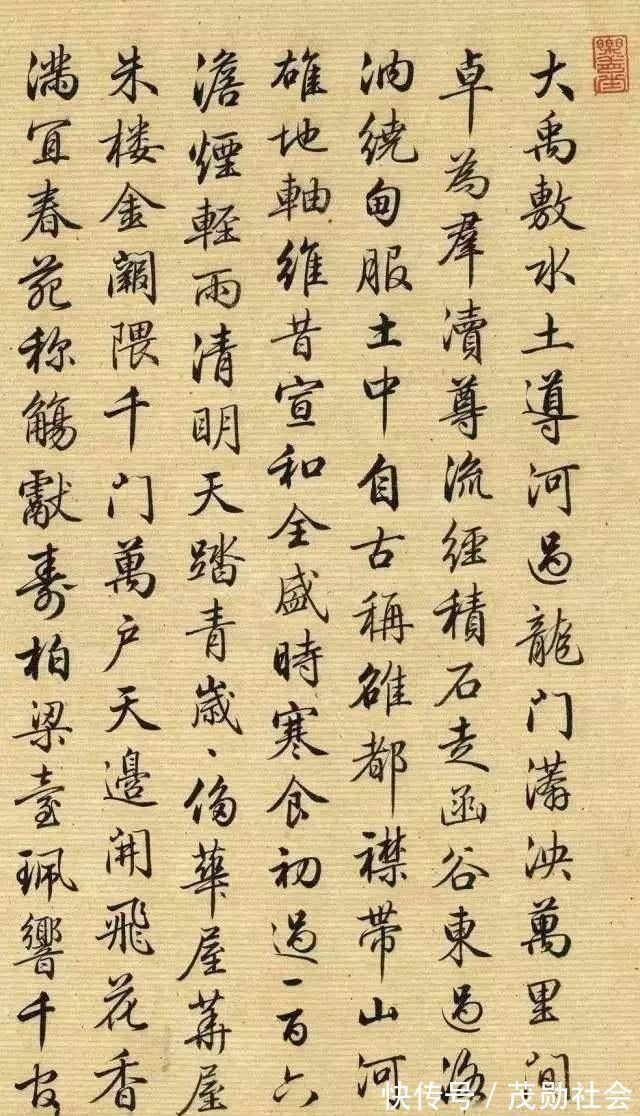 大禹敷水土導河過龍门泱萬里間
卓為羣瀆尊流經積石走函谷東過洛
汭繞甸服土中自古稱雄都襟帶山河
雄地軸維昔宣和全盛時寒食初過一百六
澹煙輕雨清明天踏青歲、侈華屋華屋
朱楼金闕隈千门萬户天邊開飛花香
满宜春苑称觴獻壽柏梁臺珮響千官
快传号 / 茂勋社会